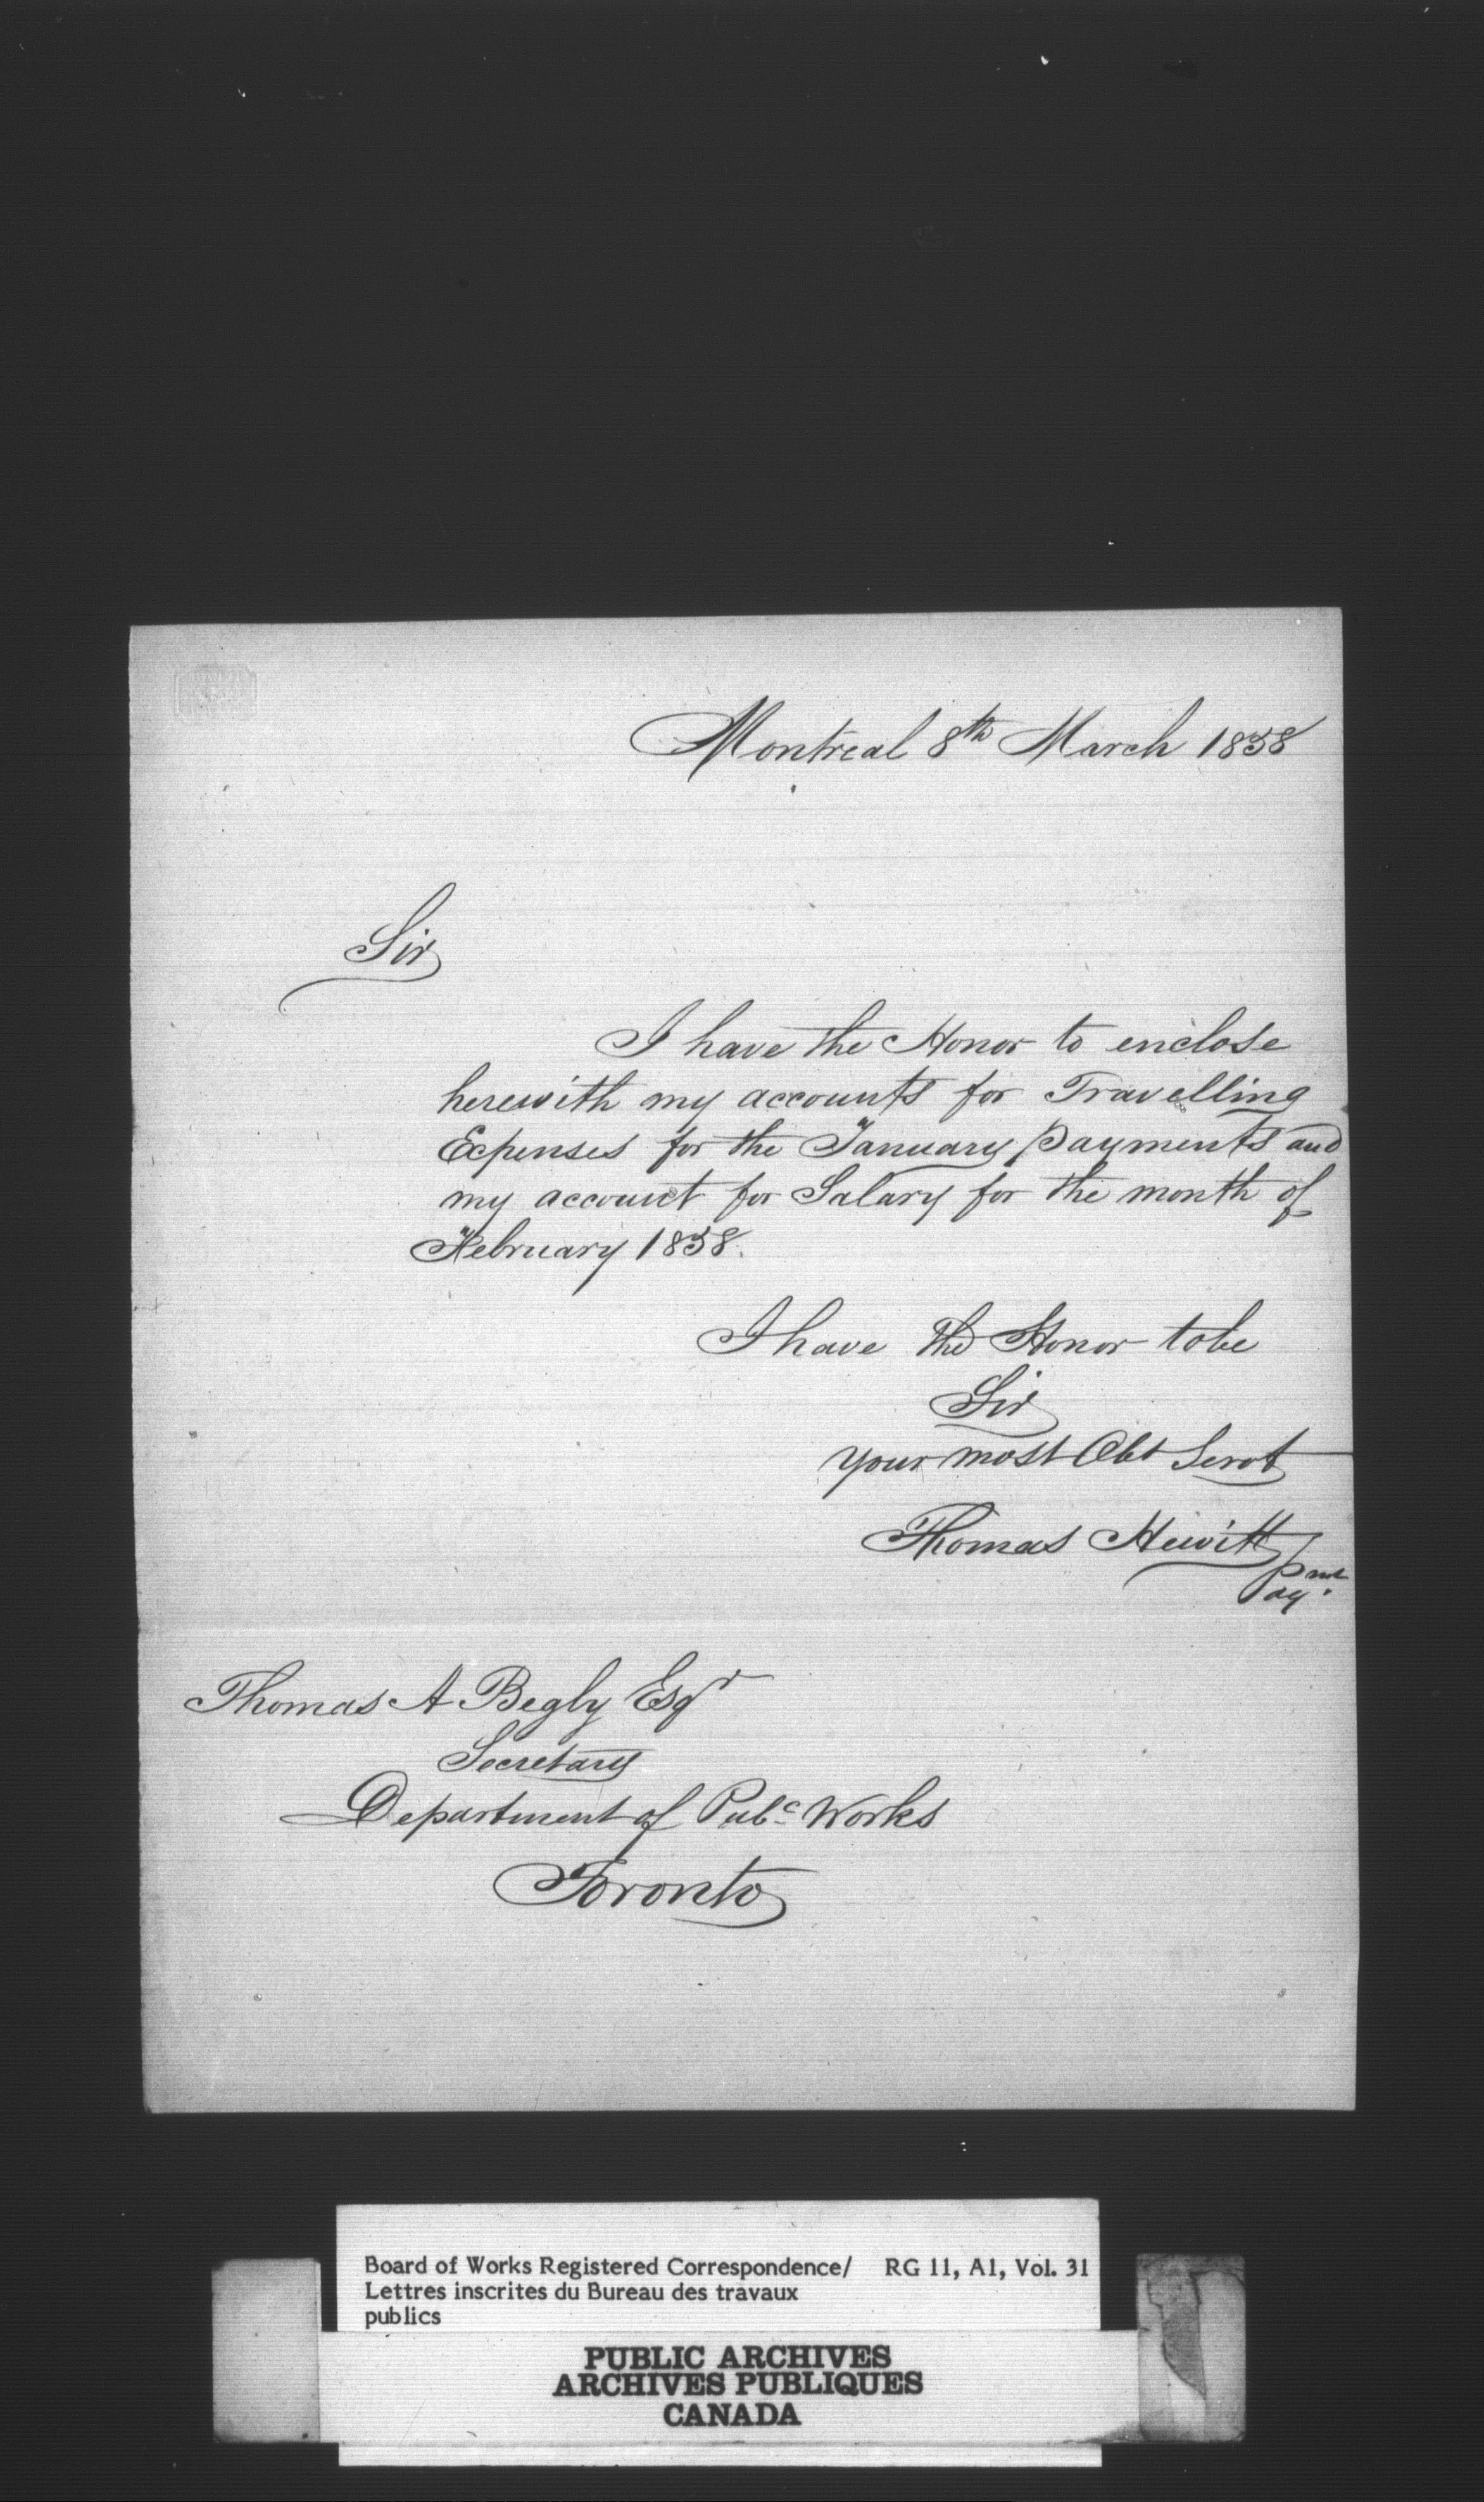 Montreal 8th March 1858
Sir
I have the Honor to enclose
herewith my accounts for Travelling
Expenses for the January Payments and
my account for Salary for the month of
February 1858.
I have the Honor to be
Sir
your most Obt Servt
Thomas Hewitt
Paymr
Thomas A Begly Esqr
Secretary
Department of Pubc Works
Toronto
Board of Works Registered Correspondence/ RG 11, A1, Vol. 31
Lettres inscrites du Bureau des travaux
publics
PUBLIC ARCHIVES
ARCHIVES PUBLIQUES
CANADA